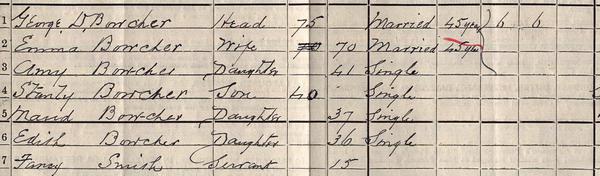 1 George D Bowcher Head 75 Married 45 years 6 6
2 Emma Bowcher Wife 70 70 Married 45 yrs
3 Amy Bowcher Daughter 41 Single
4 Stanly Bowcher Son 40 Single
5 Maud Bowcher Daughter 37 Single
6 Edith Bowcher Daughter 36 Single
7 Fancy Smith Servant 15